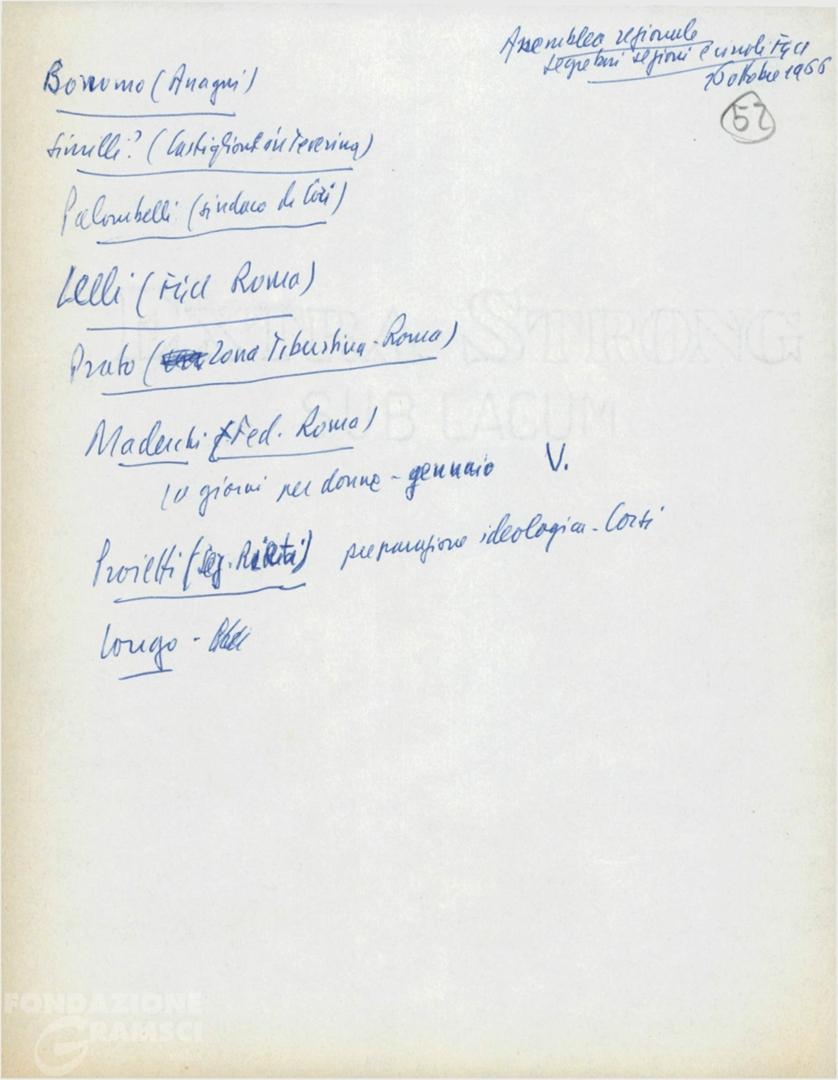 Assemblea regionale
segretari sezioni e circoli FGCI
26 ottobre 1966
52
Bonomo (Anagni)
? (Castiglione in Teverina)
Palombelli (sindaco di Cori)
Lelli (FGCI Roma)
Prato (Zona Tiburtina - Roma)
EXTRA STRONG
SUB LACUM
Maderchi (Fed. Roma)
10 giorni per donne - gennaio V.
Proietti (seg. Rieti) preparazione ideologica - Corsi
Longo -
FONDAZIONE
GRAMSCI